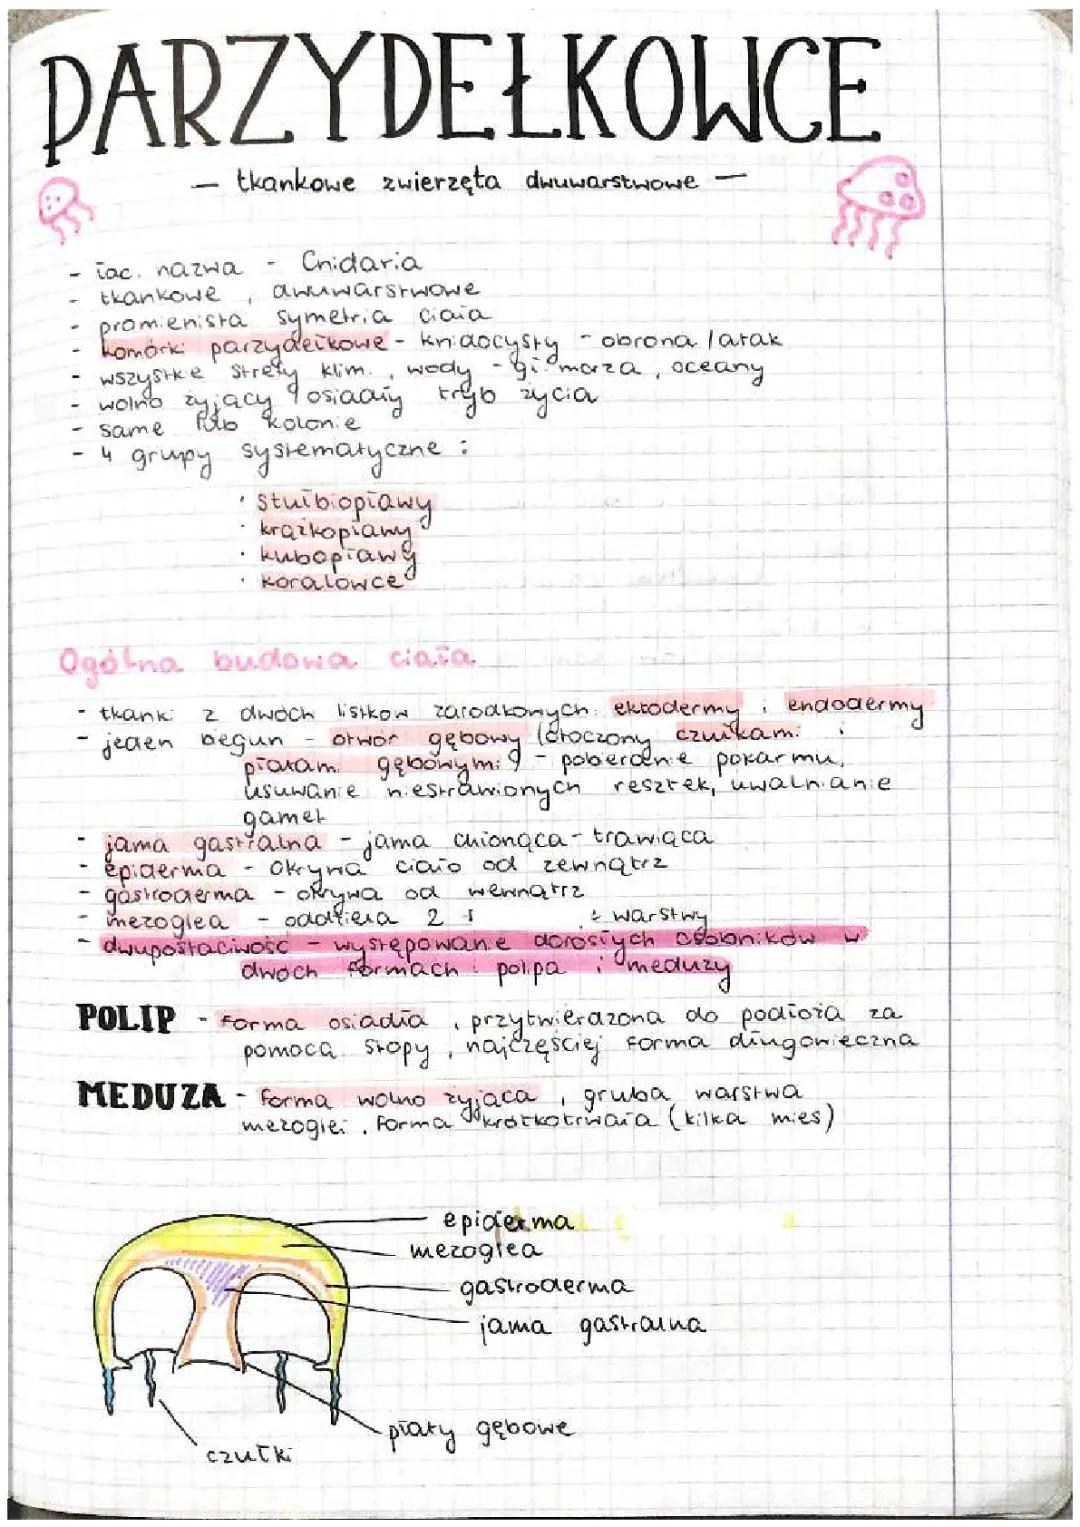 PARZYDEŁKOWCE
— tkankowe zwierzęta dwuwarstwowe —
- łac. nazwa - Cnidaria
- tkankowe, dwuwarstwowe
- promienista symetria ciała
- komórki parzydełkowe - knidocysty - obrona / atak
- wszystkie strefy klim., wody - gł. morza, oceany
- wolno żyjący / osiadły tryb życia
- same lub kolonie
- 4 grupy systematyczne :
· stułbiopławy
· krążkopławy
· kubopławy
· koralowce
Ogólna budowa ciała
- tkanki z dwóch listków zarodkowych: ektodermy i endodermy
- jeden begun - otwór gębowy (otoczony czułkami i
płatami gębowymi) - pobieranie pokarmu,
usuwanie niestrawionych resztek, uwalnianie
gamet
- jama gastralna - jama chłonąco - trawiąca
- epiderma - okrywa ciało od zewnątrz
- gastroderma - okrywa od wewnątrz
- mezoglea - oddziela 2 warstwy
- dwupostaciwość - występowanie dorosłych osobników w
dwóch formach : polipa i meduzy
POLIP - forma osiadła, przytwierdzona do podłoża za
pomocą stopy, najczęściej forma długowieczna
MEDUZA - forma wolno żyjąca, gruba warstwa
mezoglei, forma krótkotrwała (kilka mies)
epiderma
mezoglea
gastroderma
jama gastralna
płaty gębowe
czułki